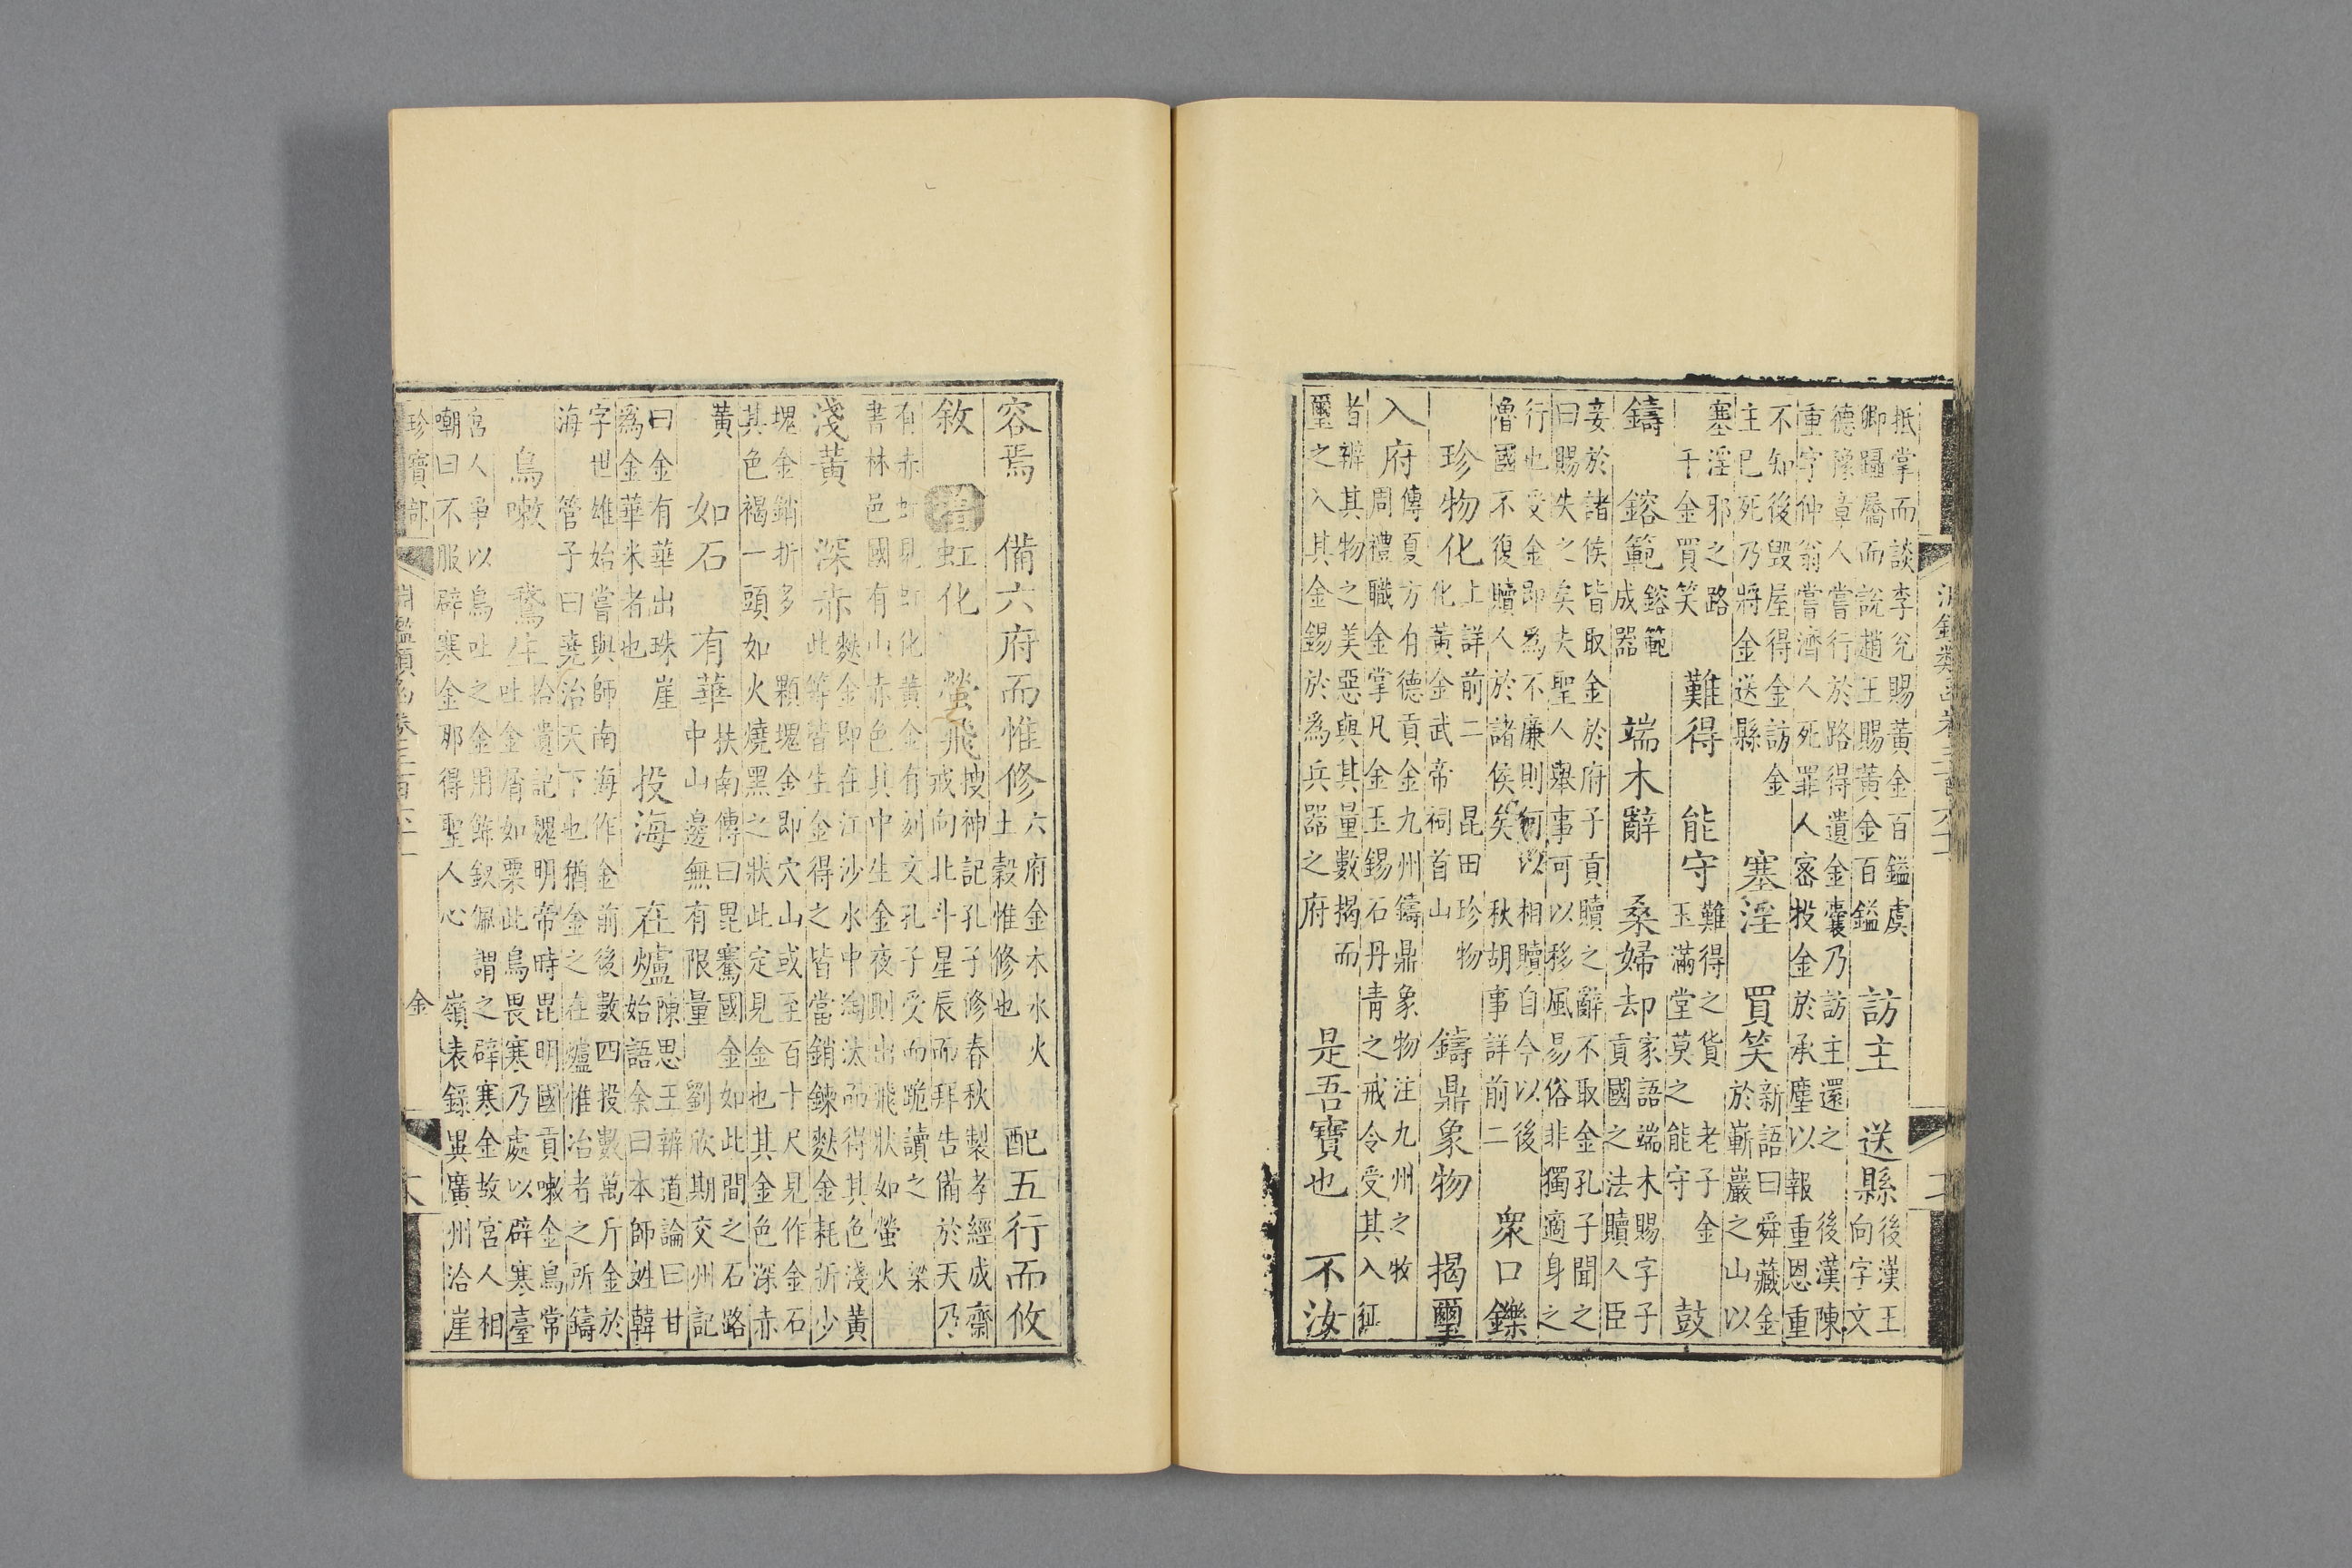 淵鑑類函卷三百六十一
抵掌而談李兊賜黃金百鎰虞
卿躡屩而說趙王賜黃金百鎰
訪主　送縣
後漢王
向字文
德豫章人嘗行於路得遺金囊乃訪主還之　後漢陳
重字仲翁嘗濟人死罪人密投金於承塵以報重恩重
不知後毁屋得金訪金
主已死乃將金送縣
塞淫　買笑
新語曰舜藏金
於嶄巖之山以
塞淫邪之路
千金買笑
難得　能守
難得之貨　老子金
玉滿堂莫之能守
鼓
鑄　鎔範
鎔範
成器
端木辭　桑婦却
家語端木賜字子
貢國之法贖人臣
妾於諸侯皆取金於府子貢贖之辭不取金孔子聞之
曰賜失之矣夫聖人舉事可以移風易俗非獨適身之
行也受金即爲不廉則何以相贖自今以後
魯國不復贖人於諸侯矣　秋胡事詳前二
衆口鑠
珍物化
上詳前二　昆田珍物
化黃金武帝祠首山
鑄鼎象物　揭璽
入府
傳夏方有德貢金九州鑄鼎象物注九州之牧
周禮職金掌凡金玉錫石丹青之戒令受其入征
者辨其物之美惡與其量數揭而
璽之入其金錫於爲兵器之府
是吾寶也　不汝
容焉　備六府而惟修
六府金木水火
土穀惟修也
配五行而攸
敘　虹化　螢飛
搜神記孔子修春秋製孝經成齋
戒向北斗星辰而拜告備於天乃
有赤虹見虹化黃金有刻文孔子受而跪讀之　梁
書林邑國有山赤色其中生金夜則出飛狀如螢火
淺黃　深赤
麩金即在江沙水中淘汰而得其色淺黃
此等皆生金得之皆當銷鍊麩金耗折少
塊金銷折多　顆塊金即穴山或至百十尺見作金石
其色褐一頭如火燒黑之狀此定見金也其金色深赤
黃
如石　有華
扶南傳曰毘騫國金如此間之石路
中山邊無有限量　劉欣期交州記
曰金有華出珠崖
爲金華米者也
投海　在爐
陳思王辨道論曰甘
始語余曰本師姓韓
字世雄始嘗與師南海作金前後數四投數萬斤金於
海　管子曰堯治天下也猶金之在爐惟冶者之所鑄
鳥嗽　鵞生
拾遺記魏明帝時毘明國貢嗽金鳥常
吐金屑如粟此鳥畏寒乃處以辟寒臺
宮人爭以鳥吐之金用飾釵佩謂之辟寒金故宮人相
嘲曰不服辟寒金那得聖人心　嶺表錄異廣州洽崖
珍寶部　淵鑑類函卷三百六十一　金